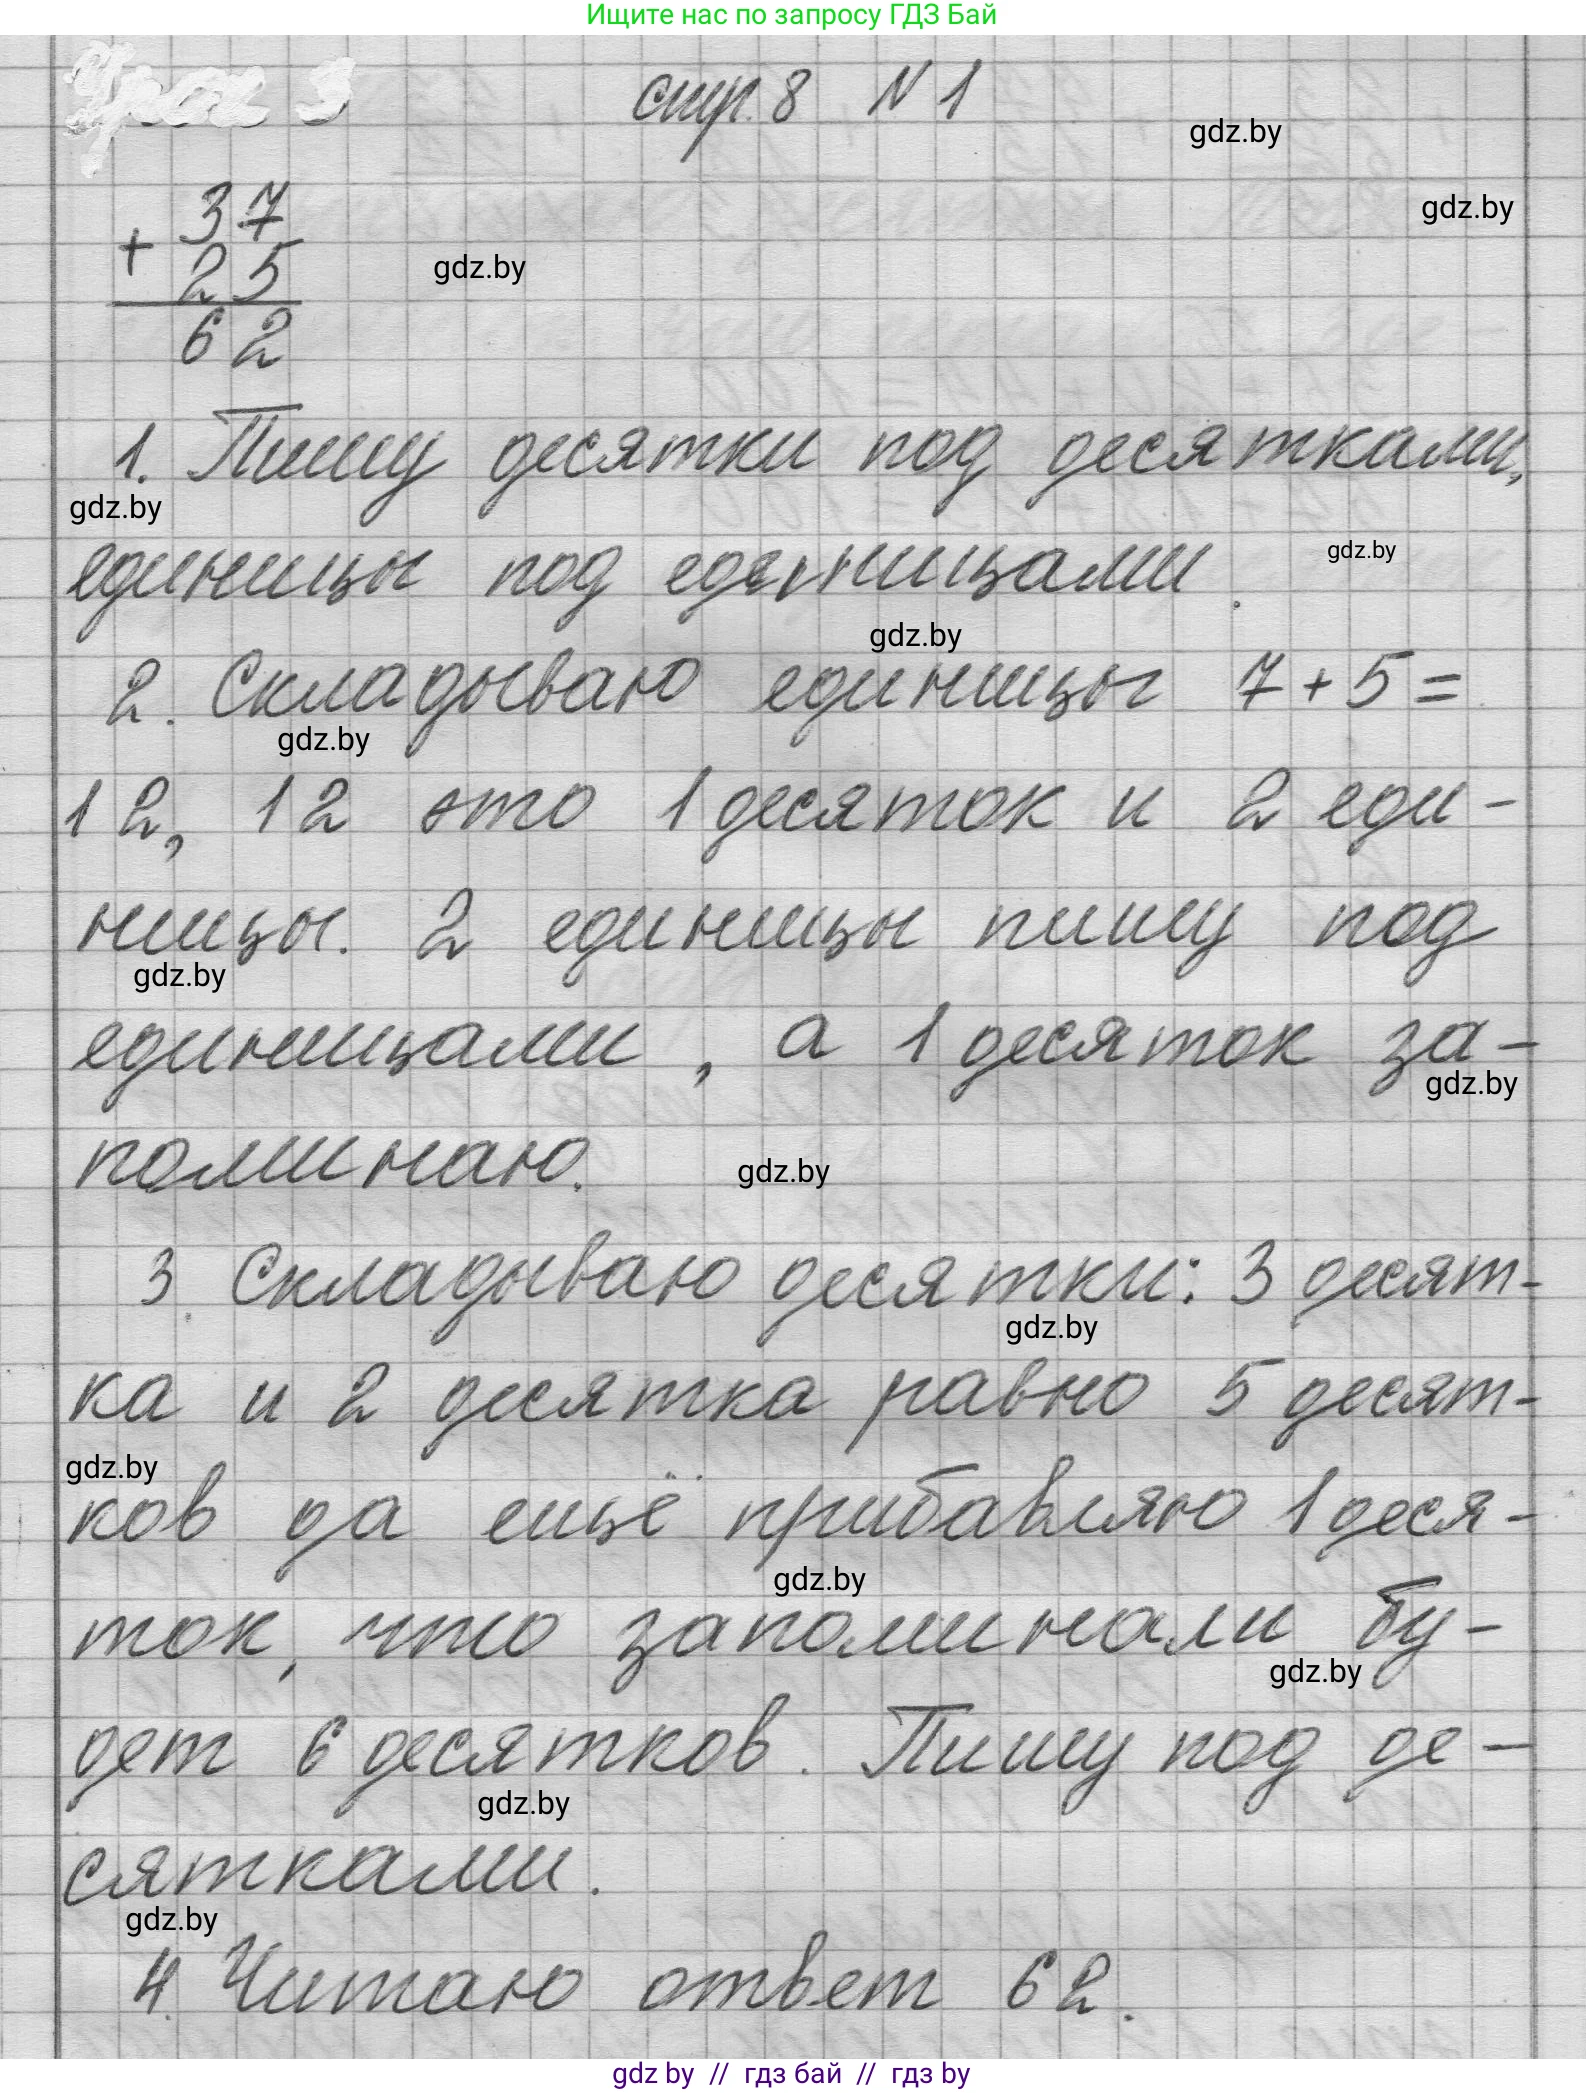 Ищите нас по запросу ГДЗ Бай
Урок 3 стр. 8 N 1
gdz.by
37
gdz.by
+ 25
gdz.by
62
1. Пишу десятки под десятками,
gdz.by
единицы под единицами.
gdz.by
gdz.by
2. Складываю единицы 7+5=
gdz.by
12, 12 это 1 десяток и 2 еди-
ницы. 2 единицы пишу под
gdz.by
единицами, а 1 десяток за-
gdz.by
поминаю.
gdz.by
3. Складываю десятки: 3 десят-
gdz.by
ка и 2 десятка равно 5 десят-
gdz.by
ков да ещё прибавляю 1 деся-
gdz.by
ток, что запоминали бу-
gdz.by
дет 6 десятков. Пишу под де-
gdz.by
сятками.
gdz.by
4. Читаю ответ 62.
gdz.by // гдз бай // гдз by